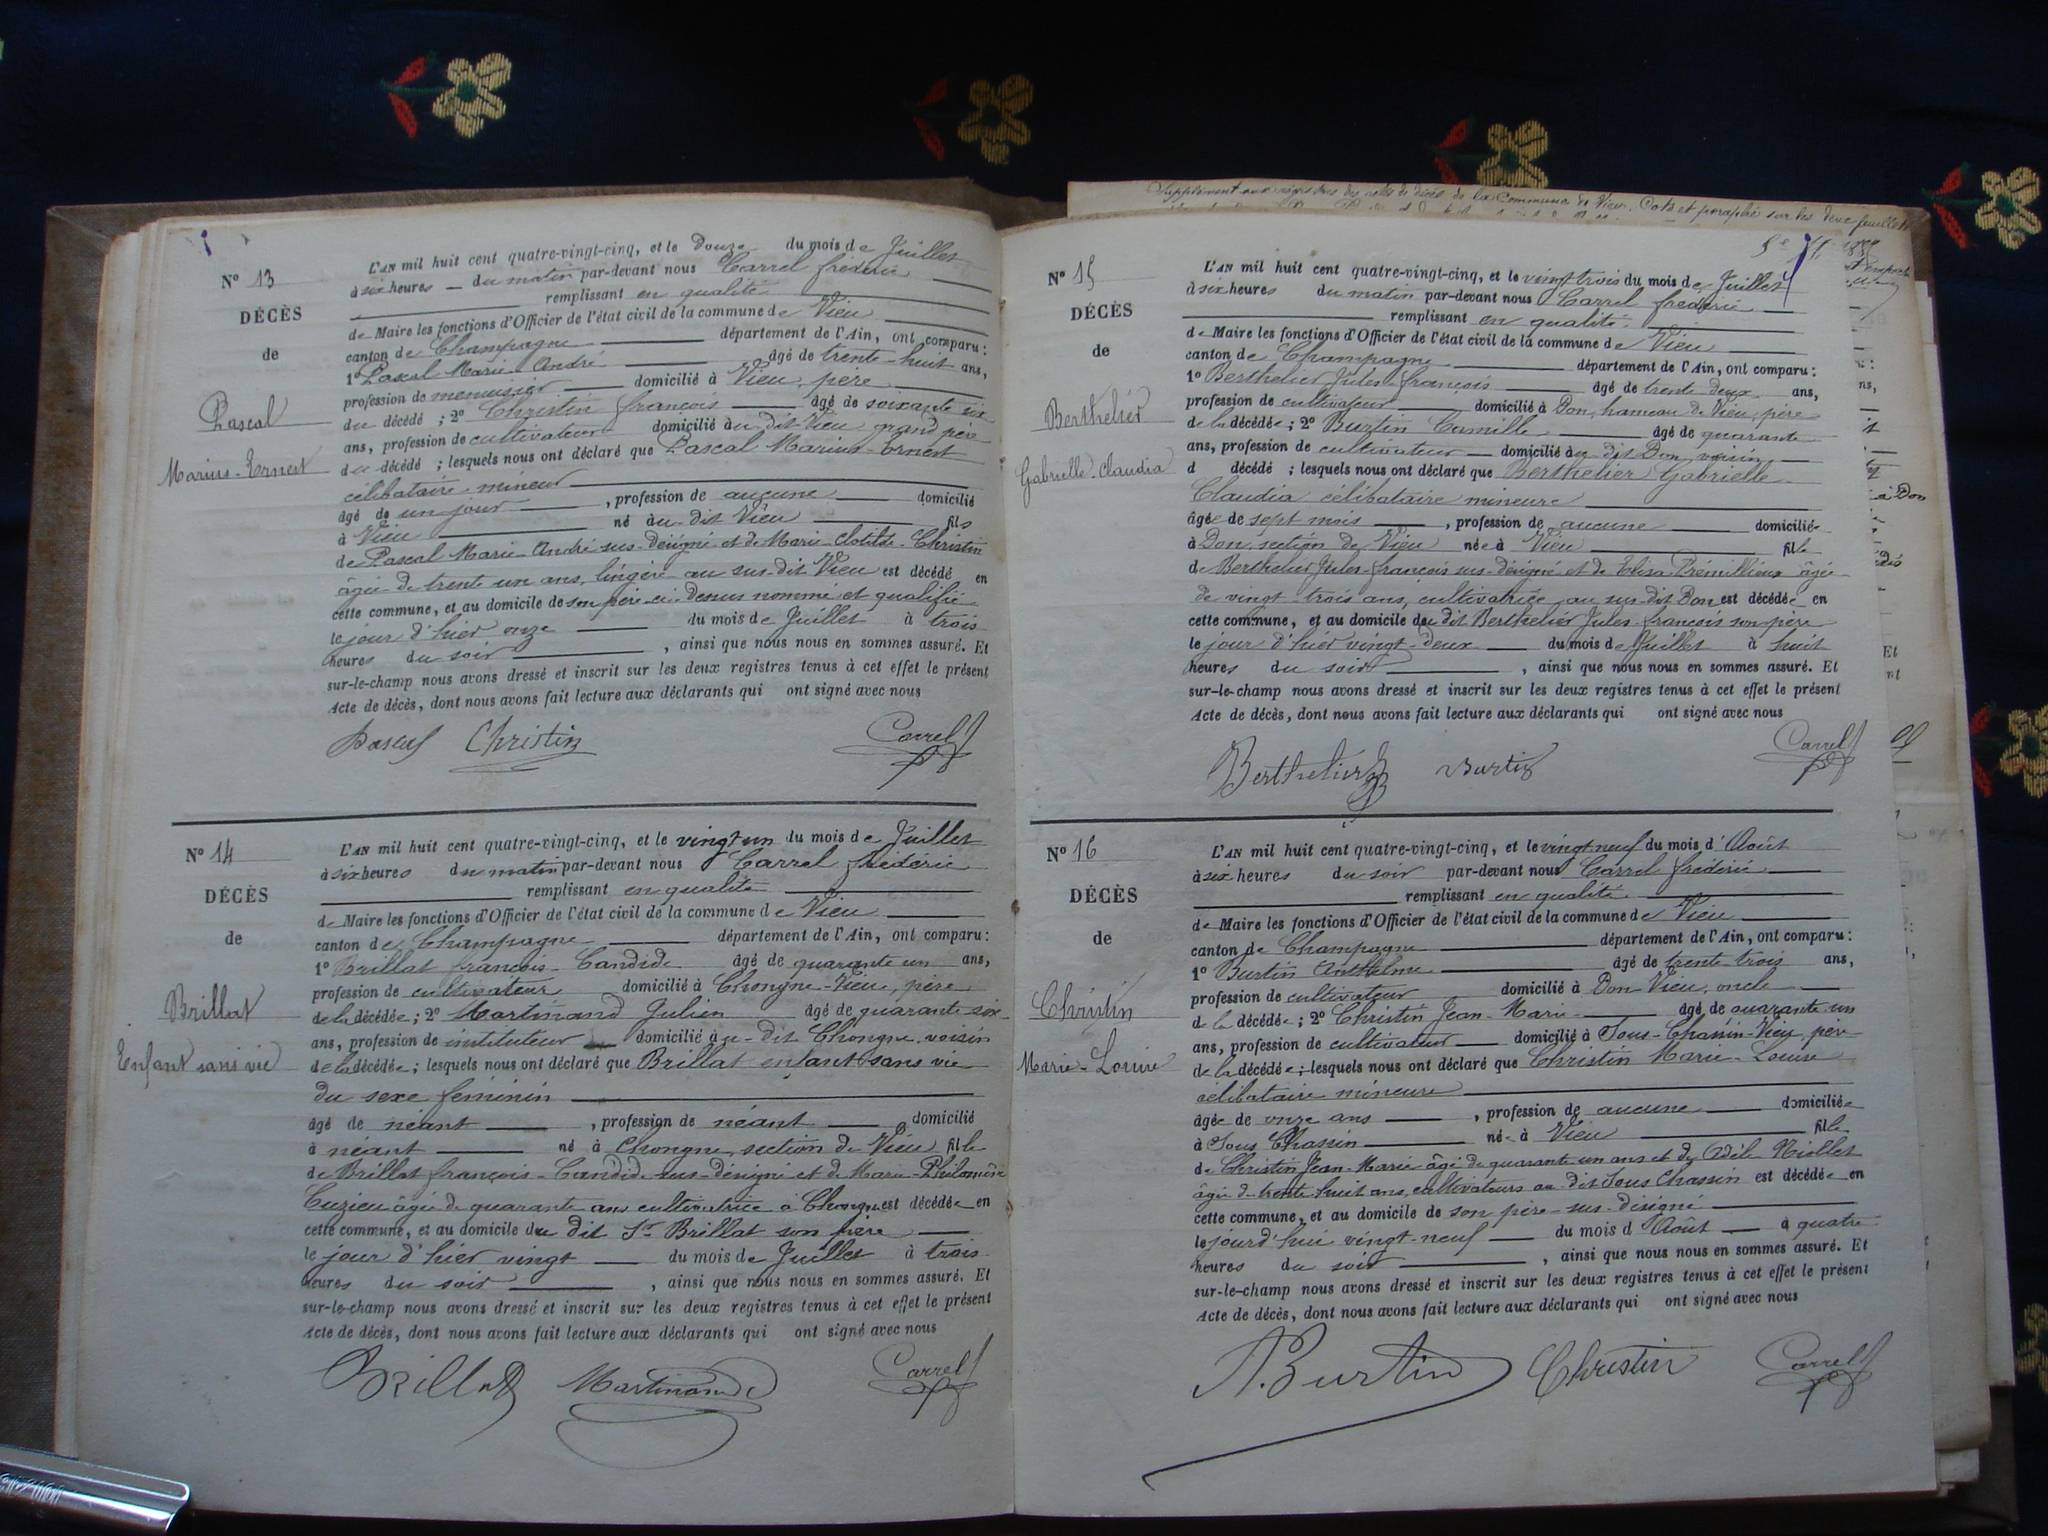 N° 13
DÉCÈS
de
Pascal
Marius-Ernest
L'AN mil huit cent quatre-vingt-cinq, et le Douze du mois de Juillet
à six heures du matin par-devant nous Carrel frédéric
remplissant en qualité
de Maire les fonctions d'Officier de l'état civil de la commune de Vieu
canton de Champagne département de l'Ain, ont comparu :
1° Pascal Marie-André âgé de trente-huit ans,
profession de menuisier domicilié à Vieu, père
du décédé ; 2° Christin françois âgé de soixante six
ans, profession de cultivateur domicilié au dit Vieu grand père
du décédé ; lesquels nous ont déclaré que Pascal Marius-Ernest
célibataire mineur
âgé de un jour , profession de aucune domicilié
à Vieu né au dit Vieu fils
de Pascal Marie-André sus-désigné et de Marie-Clotilde-Christin
âgée de trente un ans, lingère au sus-dit Vieu est décédé en
cette commune, et au domicile de son père ci-dessus nommé et qualifié
le jour d'hier onze du mois de Juillet à trois
heures du soir , ainsi que nous nous en sommes assuré. Et
sur-le-champ nous avons dressé et inscrit sur les deux registres tenus à cet effet le présent
Acte de décès, dont nous avons fait lecture aux déclarants qui ont signé avec nous
Pascal Christin Carrel
N° 14
DÉCÈS
de
Brillat
Enfant sans vie
L'AN mil huit cent quatre-vingt-cinq, et le vingt un du mois de Juillet
à six heures du matin par-devant nous Carrel frédéric
remplissant en qualité
de Maire les fonctions d'Officier de l'état civil de la commune de Vieu
canton de Champagne département de l'Ain, ont comparu :
1° Brillat françois-Candide âgé de quarante un ans,
profession de cultivateur domicilié à Chongne-Vieu, père
de la décédée ; 2° Martinand Julien âgé de quarante six
ans, profession de instituteur domicilié au-dit Chongne, voisin
de la décédée ; lesquels nous ont déclaré que Brillat enfant sans vie
du sexe féminin
âgé de néant , profession de néant domicilié
à néant né à Chongne, section de Vieu fille
de Brillat françois-Candide sus-désigné et de Marie-Philomène
Cuzieu âgée de quarante ans cultivatrice à Chongne est décédée en
cette commune, et au domicile du dit Sr Brillat son père
le jour d'hier vingt du mois de Juillet à trois
heures du soir , ainsi que nous nous en sommes assuré. Et
sur-le-champ nous avons dressé et inscrit sur les deux registres tenus à cet effet le présent
Acte de décès, dont nous avons fait lecture aux déclarants qui ont signé avec nous
Brillat Martinand Carrel
Supplément aux registres des actes de décès de la Commune de Vieu. Coté et paraphé sur les deux feuillets
N° 15
DÉCÈS
de
Berthelier
Gabrielle-Claudia
L'AN mil huit cent quatre-vingt-cinq, et le vingt trois du mois de Juillet
à six heures du matin par-devant nous Carrel frédéric
remplissant en qualité
de Maire les fonctions d'Officier de l'état civil de la commune de Vieu
canton de Champagne département de l'Ain, ont comparu :
1° Berthelier Jules-françois âgé de trente deux ans,
profession de cultivateur domicilié à Don, hameau de Vieu, père
de la décédée ; 2° Burtin Camille âgé de quarante
ans, profession de cultivateur domicilié au dit Don, voisin
d décédé ; lesquels nous ont déclaré que Berthelier Gabrielle
Claudia célibataire mineure
âgée de sept mois , profession de aucune domiciliée
à Don, section de Vieu née à Vieu fille
de Berthelier Jules-françois sus-désigné et de Elisa Prémillieu âgée
de vingt-trois ans, cultivatrice au sus-dit Don est décédée en
cette commune, et au domicile du dit Berthelier Jules-françois son père
le jour d'hier vingt-deux du mois de Juillet à huit
heures du soir , ainsi que nous nous en sommes assuré. Et
sur-le-champ nous avons dressé et inscrit sur les deux registres tenus à cet effet le présent
Acte de décès, dont nous avons fait lecture aux déclarants qui ont signé avec nous
Berthelier Burtin Carrel
N° 16
DÉCÈS
de
Christin
Marie-Louise
L'AN mil huit cent quatre-vingt-cinq, et le vingt neuf du mois d'Août
à six heures du soir par-devant nous Carrel frédéric
remplissant en qualité
de Maire les fonctions d'Officier de l'état civil de la commune de Vieu
canton de Champagne département de l'Ain, ont comparu :
1° Burtin Anthelme âgé de trente-trois ans,
profession de cultivateur domicilié à Don-Vieu, oncle
de la décédée ; 2° Christin Jean-Marie âgé de quarante un
ans, profession de cultivateur domicilié à Sous-Chassin-Vieu, père
de la décédée ; lesquels nous ont déclaré que Christin Marie-Louise
célibataire mineure
âgée de onze ans , profession de aucune domiciliée
à Sous Chassin née à Vieu fille
de Christin Jean-Marie âgé de quarante un ans et de Adèle Niollet
âgée de trente huit ans, cultivateurs au dit Sous Chassin est décédée en
cette commune, et au domicile de son père sus-désigné
le jourd'hui vingt neuf du mois d'Août à quatre
heures du soir , ainsi que nous nous en sommes assuré. Et
sur-le-champ nous avons dressé et inscrit sur les deux registres tenus à cet effet le présent
Acte de décès, dont nous avons fait lecture aux déclarants qui ont signé avec nous
A. Burtin Christin Carrel